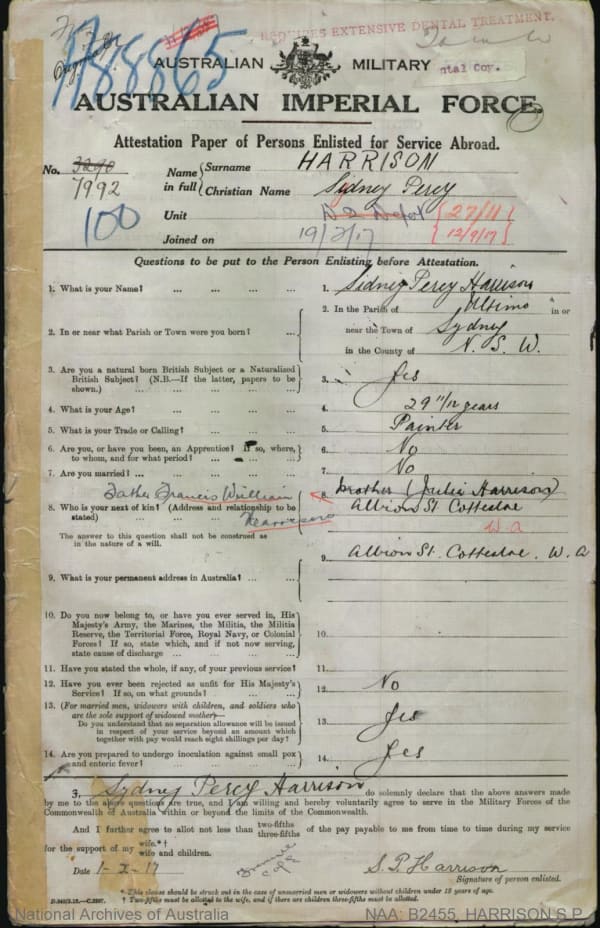 REQUIRES EXTENSIVE DENTAL TREATMENT.
7/88865
AUSTRALIAN MILITARY
ntal Cop.
AUSTRALIAN IMPERIAL FORCE.
Attestation Paper of Persons Enlisted for Service Abroad.
No. 3290 Name in full Surname HARRISON
7992 Christian Name Sidney Percy
100 Unit N 2 Depot 27/11
Joined on 19/2/17 12/9/17
Questions to be put to the Person Enlisting before Attestation.
1. What is your Name? ... ... ... ... 1. Sidney Percy Harrison
2. In or near what Parish or Town were you born? ... 2. In the Parish of Ultimo in or
near the Town of Sydney
in the County of N. S. W.
3. Are you a natural born British Subject or a Naturalized
British Subject? (N.B.—If the latter, papers to be
shown.) ... ... ... ... 3. Yes
4. What is your Age? ... ... ... ... 4. 29 11/12 years
5. What is your Trade or Calling? ... ... ... 5. Painter
6. Are you, or have you been, an Apprentice? If so, where,
to whom, and for what period? ... ... ... 6. No
7. Are you married? ... ... ... ... 7. No
Father Francis William
Harrison
8. Who is your next of kin? (Address and relationship to be
stated) 8. brother (Julia Harrison)
Albion St Cottesloe
W.A
The answer to this question shall not be construed as
in the nature of a will.
9. What is your permanent address in Australia? ... ... 9. Albion St. Cottesloe, W. A
10. Do you now belong to, or have you ever served in, His
Majesty's Army, the Marines, the Militia, the Militia
Reserve, the Territorial Force, Royal Navy, or Colonial
Forces? If so, state which, and if not now serving,
state cause of discharge ... ... ... 10.
11. Have you stated the whole, if any, of your previous service? 11.
12. Have you ever been rejected as unfit for His Majesty's
Service? If so, on what grounds? ... ... 12. No
13. (For married men, widowers with children, and soldiers who
are the sole support of widowed mother)—
Do you understand that no separation allowance will be issued
in respect of your service beyond an amount which
together with pay would reach eight shillings per day? 13. Yes
14. Are you prepared to undergo inoculation against small pox
and enteric fever? ... ... ... ... 14. Yes
I, Sydney Percy Harrison do solemnly declare that the above answers made
by me to the above questions are true, and I am willing and hereby voluntarily agree to serve in the Military Forces of the
Commonwealth of Australia within or beyond the limits of the Commonwealth.
And I further agree to allot not less than two-fifths three-fifths of the pay payable to me from time to time during my service
for the support of my wife.*† wife and children.
Date 1-2-17 S. P. Harrison
Signature of person enlisted.
* This clause should be struck out in the case of unmarried men or widowers without children under 18 years of age.
† Two-fifths must be allotted to the wife, and if there are children three-fifths must be allotted.
National Archives of Australia NAA: B2455, HARRISON S P